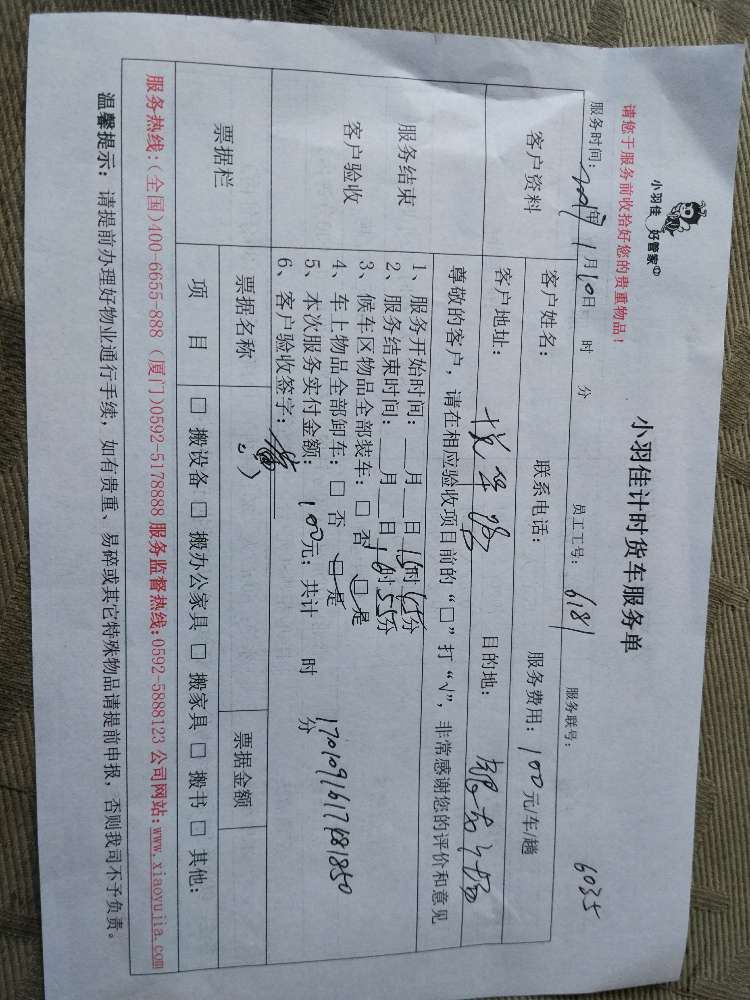 小羽佳 好管家
请您于服务前收拾好您的贵重物品！
小羽佳计时货车服务单
服务时间： 年 1月10日 时 分 员工工号： 6181 服务联号： 6035
客户资料
客户姓名： 联系电话： 服务费用：100元/车/趟
客户地址： 目的地：
尊敬的客户，请在相应验收项目前的“□”打“√”，非常感谢您的评价和意见
服务结束
客户验收
1、服务开始时间：__月__日 时 分
2、服务结束时间：__月__日16时55分
3、候车区物品全部装车：□ 否 □ 是
4、车上物品全部卸车：□ 否 □ 是
5、本次服务实付金额： 100元；共计 时 分
6、客户验收签字：
票据栏
票据名称 票据金额
项 目 □ 搬设备 □ 搬办公家具 □ 搬家具 □ 搬书 □ 其他：
服务热线:(全国)400-6655-888 (厦门)0592-5178888 服务监督热线:0592-5888123 公司网站:www.xiaoyujia.com
温馨提示：请提前办理好物业通行手续，如有贵重、易碎或其它特殊物品请提前申报，否则我司不予负责。